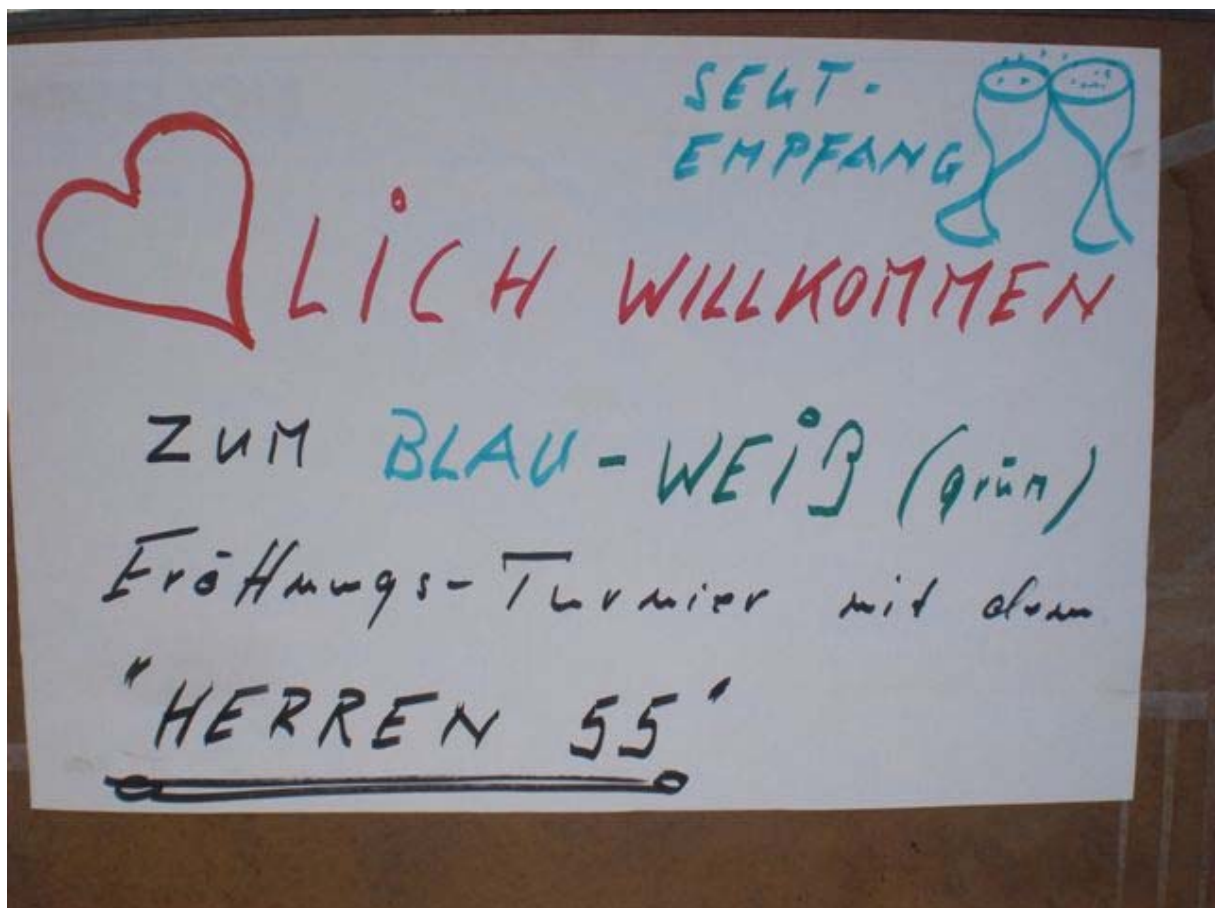 SEKT-
EMPFANG
LiCH WILLKOMMEN
ZUM BLAU-WEiß (grün)
Eröffnungs-Turnier mit den
"HERREN 55"